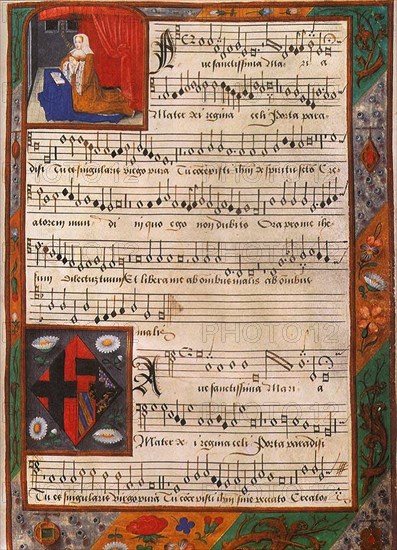 Ave sanctissima Mari a
Mater dei regina celi Porta para
disi Tu es singularis virgo pura Tu cōcepisti ihm̄ de spiritu scto Cre
atorem mun di in quo ego non dubito Ora pro me ihe
sum dilectum tuum Et libera me ab omnibus malis ab omnibus
malis
Ave sanctissima Mari a
Mater de i regina celi Porta paradisi
Tu es singularis virgo pura Tu cōcepisti ihm̄ sine peccato Creato
PHOTO12